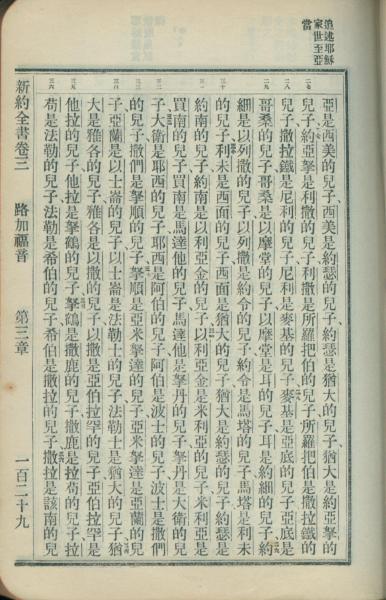 追述耶穌
家世至亞
當
亞是西美的兒子、西美是約瑟的兒子、約瑟是猶大的兒子、猶大是約亞拏的
二七
兒子、約亞拏是利撒的兒子、利撒是所羅把伯的兒子、所羅把伯是撒拉鐵的
二八
兒子、撒拉鐵是尼利的兒子、尼利是麥基的兒子、麥基是亞底的兒子、亞底是
二九
哥桑的兒子、哥桑是以摩堂的兒子、以摩堂是耳的兒子、耳是約細的兒子、約
細是以列撒的兒子、以列撒是約令的兒子、約令是馬塔的兒子、馬塔是利未
三十
的兒子、利未是西面的兒子、西面是猶大的兒子、猶大是約瑟的兒子、約瑟是
三一
約南的兒子、約南是以利亞金的兒子、以利亞金是米利亞的兒子、米利亞是
買南的兒子、買南是馬達他的兒子、馬達他是拏丹的兒子、拏丹是大衛的兒
三二
子、大衛是耶西的兒子、耶西是阿伯的兒子、阿伯是波士的兒子、波士是撒們
三三
的兒子、撒們是拏順的兒子、拏順是亞米拏達的兒子、亞米拏達是亞蘭的兒
子、亞蘭是以士崙的兒子、以士崙是法勒士的兒子、法勒士是猶大的兒子、猶
三四
大是雅各的兒子、雅各是以撒的兒子、以撒是亞伯拉罕的兒子、亞伯拉罕是
三五
他拉的兒子、他拉是拏鶴的兒子、拏鶴是撒鹿的兒子、撒鹿是拉苟的兒子、拉
三六
苟是法勒的兒子、法勒是希伯的兒子、希伯是撒拉的兒子、撒拉是該南的兒
新約全書卷三 路加福音 第三章 一百二十九